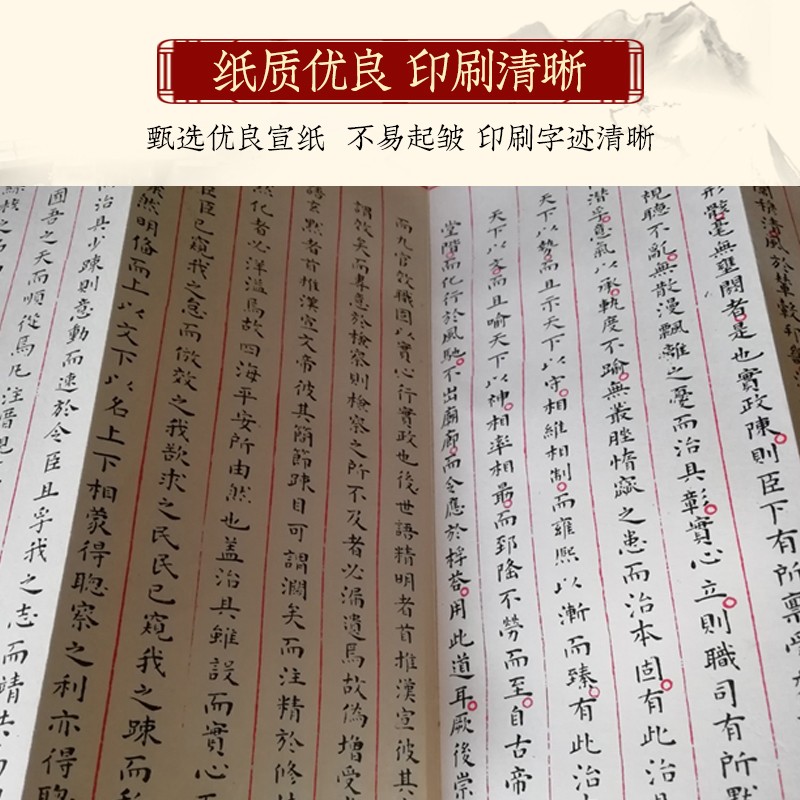 纸质优良 印刷清晰
甄选优良宣纸 不易起皱 印刷字迹清晰
清風於
形骸毫無壅閼者是也實政陳則臣下有所稟受
視聽不亂無散漫飄離之憂而治具彰實心立則職司有所默
潛孚意氣以承執度不踰無叢脞惰窳之患而治本固有此治
天下以勢而且示天下以守相維相制而雍熙以漸而臻有此治
天下以文而且喻天下以神相率相最而郅隆不勞而至自古帝
堂階而化行於風馳不出廟廊而令應於桴荅用此道耳厥後崇
而九官效職固以實心行實政也後世語精明者首推漢宣彼其
謂效矣而專意於檢察則檢察之所不及者必漏遺焉故偽增受
語玄默者首推漢宣文帝彼其簡節踈目可謂濶矣而注精於修
化者必洋溢焉故四海平安所由然也蓋治具雖設而實心
臣已窺我之怠而倣效之我欲求之民民已窺我之踈而私
然明脩而上以文下以名上下相蒙得聰察之利亦得聰
治具少踈則意動而速於令臣且孚我之志而靖共
圄吾之天而順從焉凡注厝規